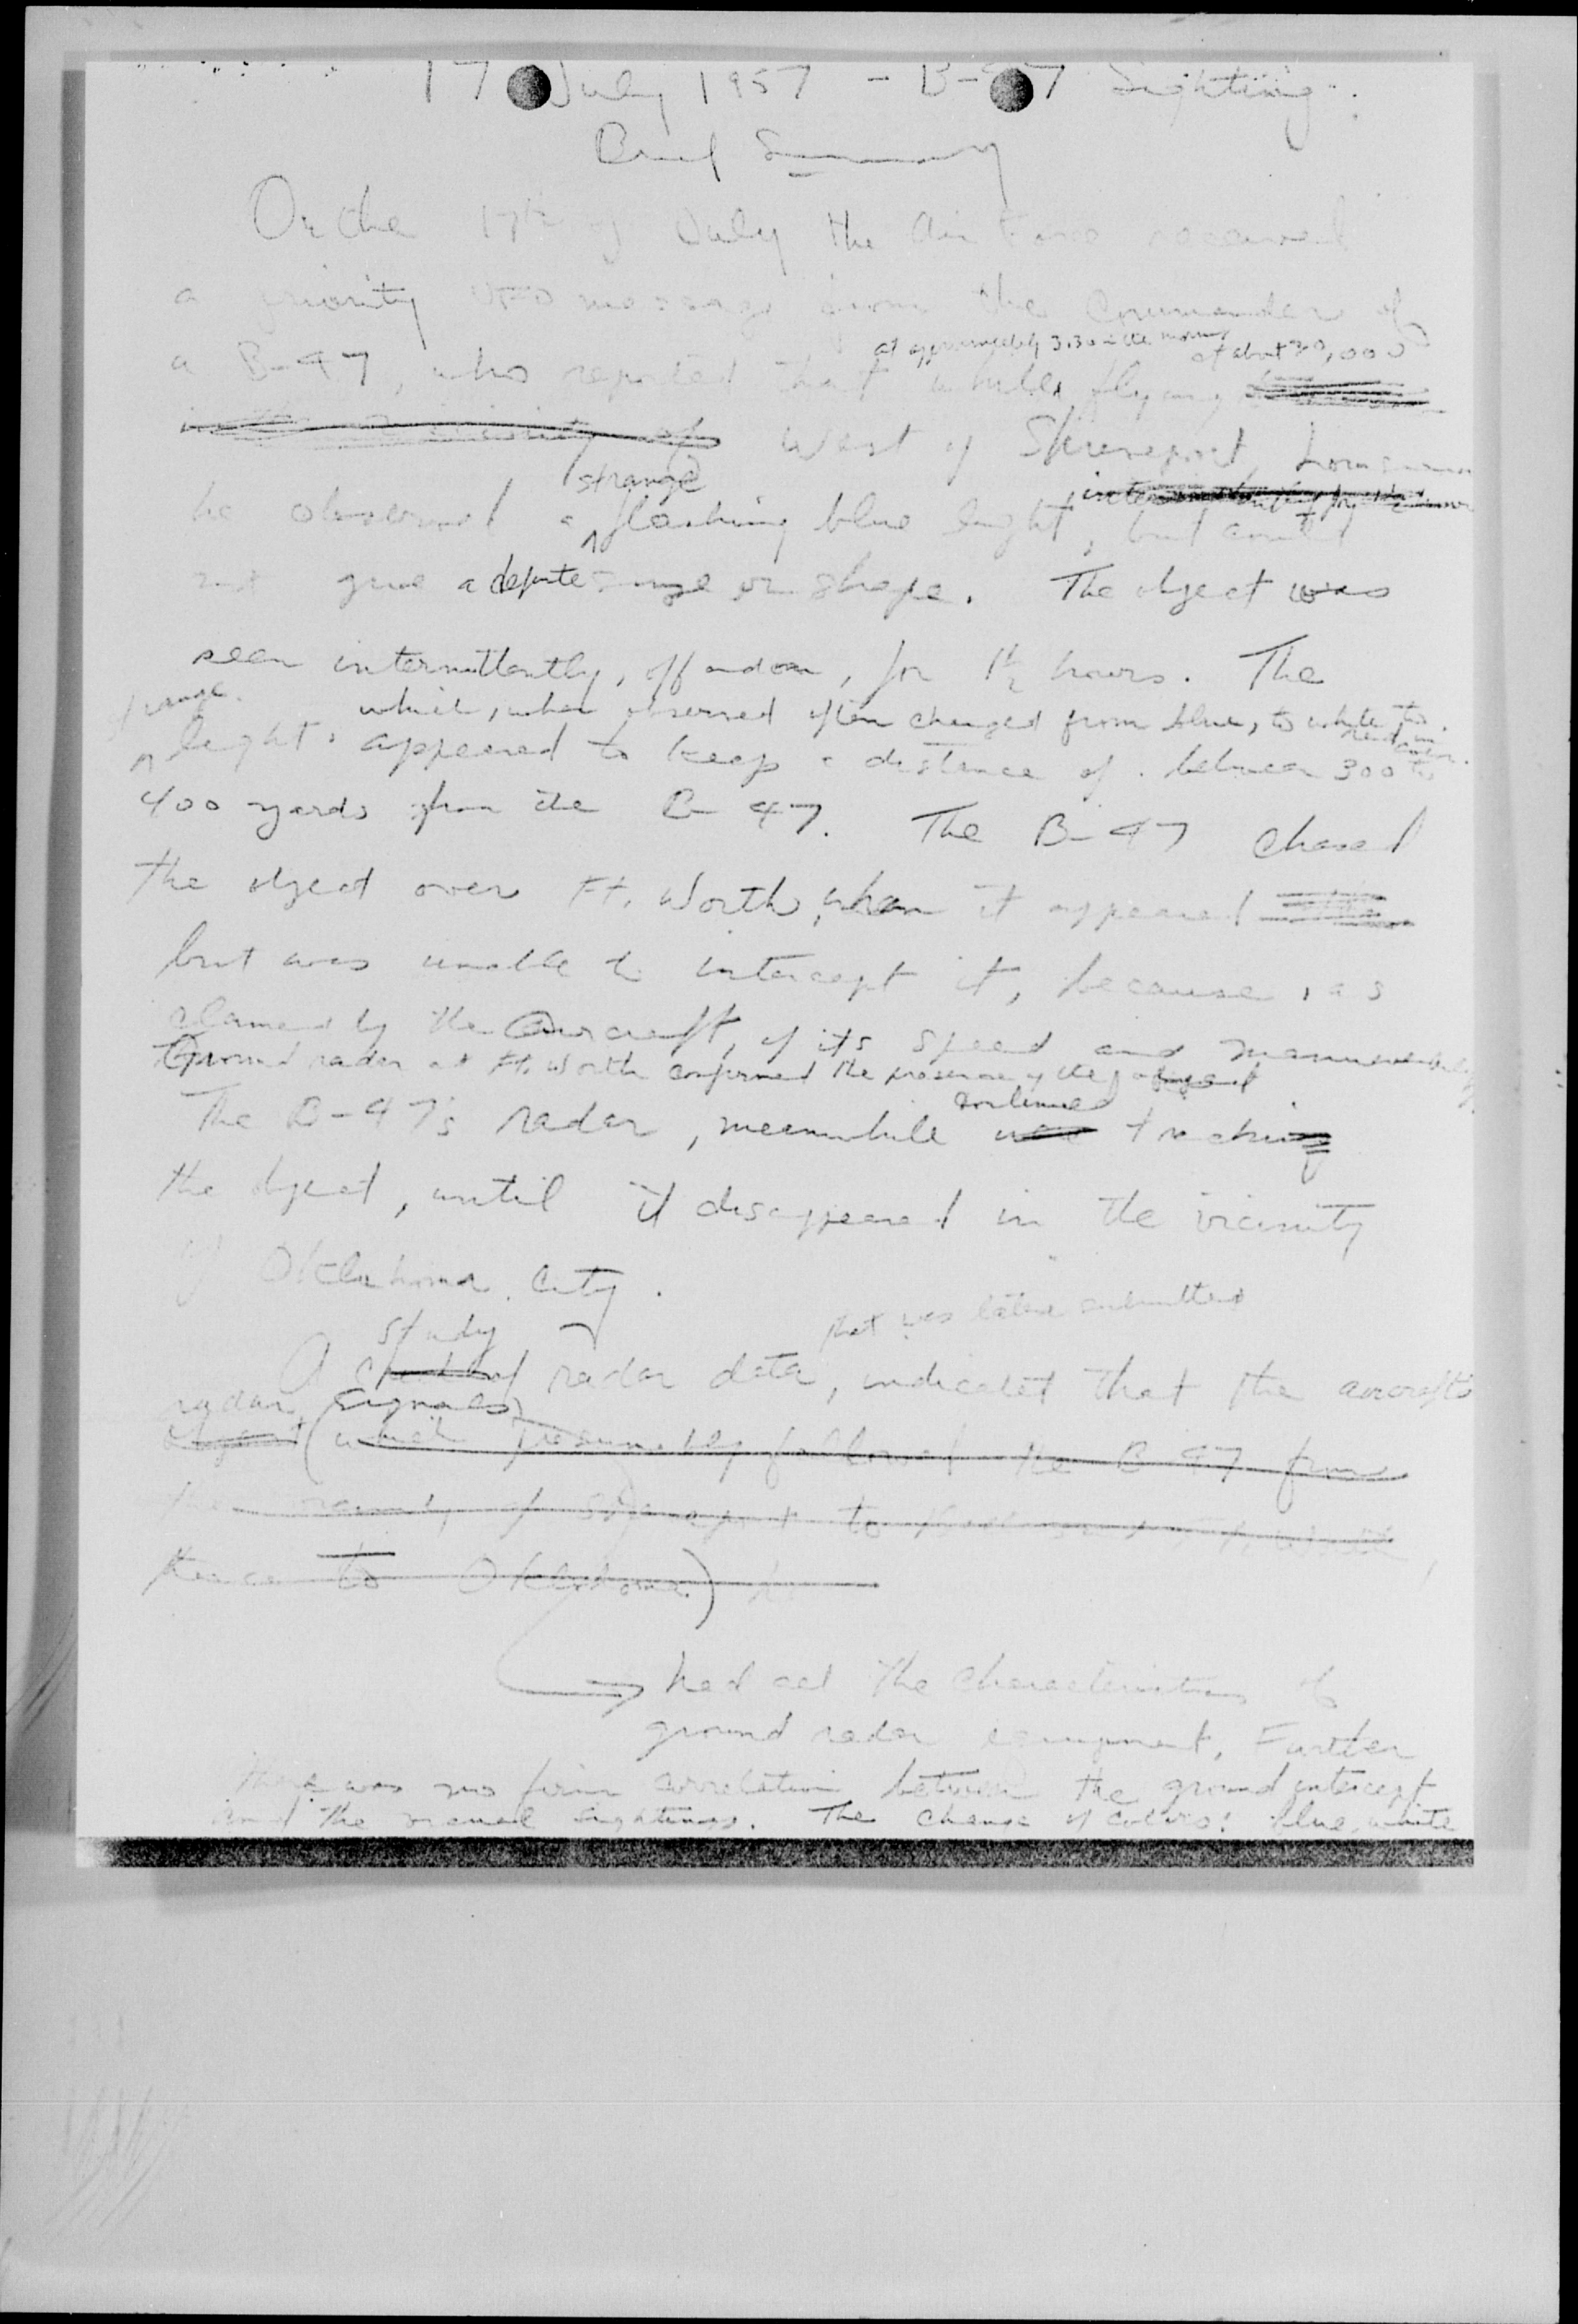 17 July 1957 - B-47 Sighting
Brief Summary
On the 17th of July the Air Force received
a priority UFO message from the Commander of
at approximately 3:30 in the morning at about 30,000
a B-47, who reported that while flying
West of Shreveport, Louisiana
strange
he observed a flashing blue light, but could
not give a definite size or shape. The object was
seen intermittently, off and on, for 1½ hours. The
strange which, when observed often changed from blue, to white to red in color.
light appeared to keep a distance of between 300 to
400 yards from the B-47. The B-47 chased
the object over Ft. Worth, when it appeared
but was unable to intercept it, because, as
claimed by the aircraft, of its speed and maneuverability
Ground radar at Ft. Worth confirmed the presence of the object
continued
The B-47's radar, meanwhile was tracking
the object, until it disappeared in the vicinity
of Oklahoma City.
study that was later submitted
A check of radar data, indicated that the aircraft's
radar signals
object (which presumably followed the B-47 from
the vicinity of Shreveport to
thence to Oklahoma)
had all the characteristics of
ground radar equipment. Further
there was no firm correlation between the ground intercept
and the visual sightings. The change of colors: blue, white